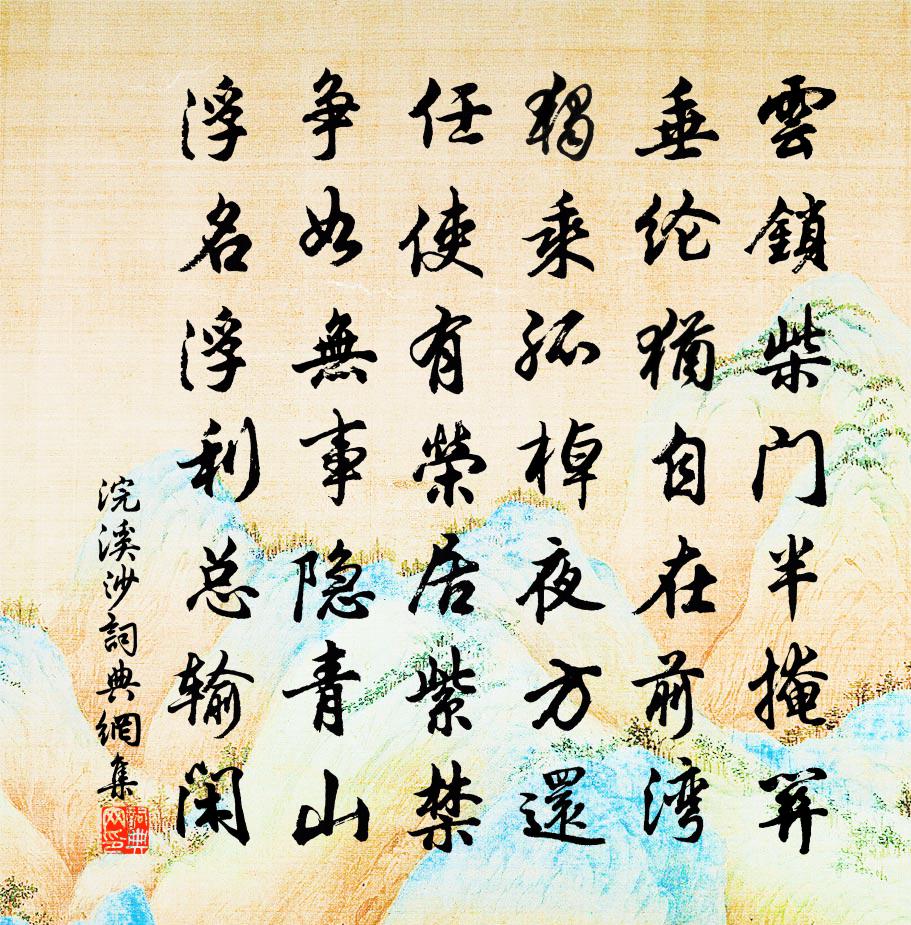 雲鎖柴门半掩关
垂纶猶自在前湾
獨乘孤棹夜方還
任使有榮居紫禁
争如無事隐青山
浮名浮利总输闲
浣溪沙詞典網集